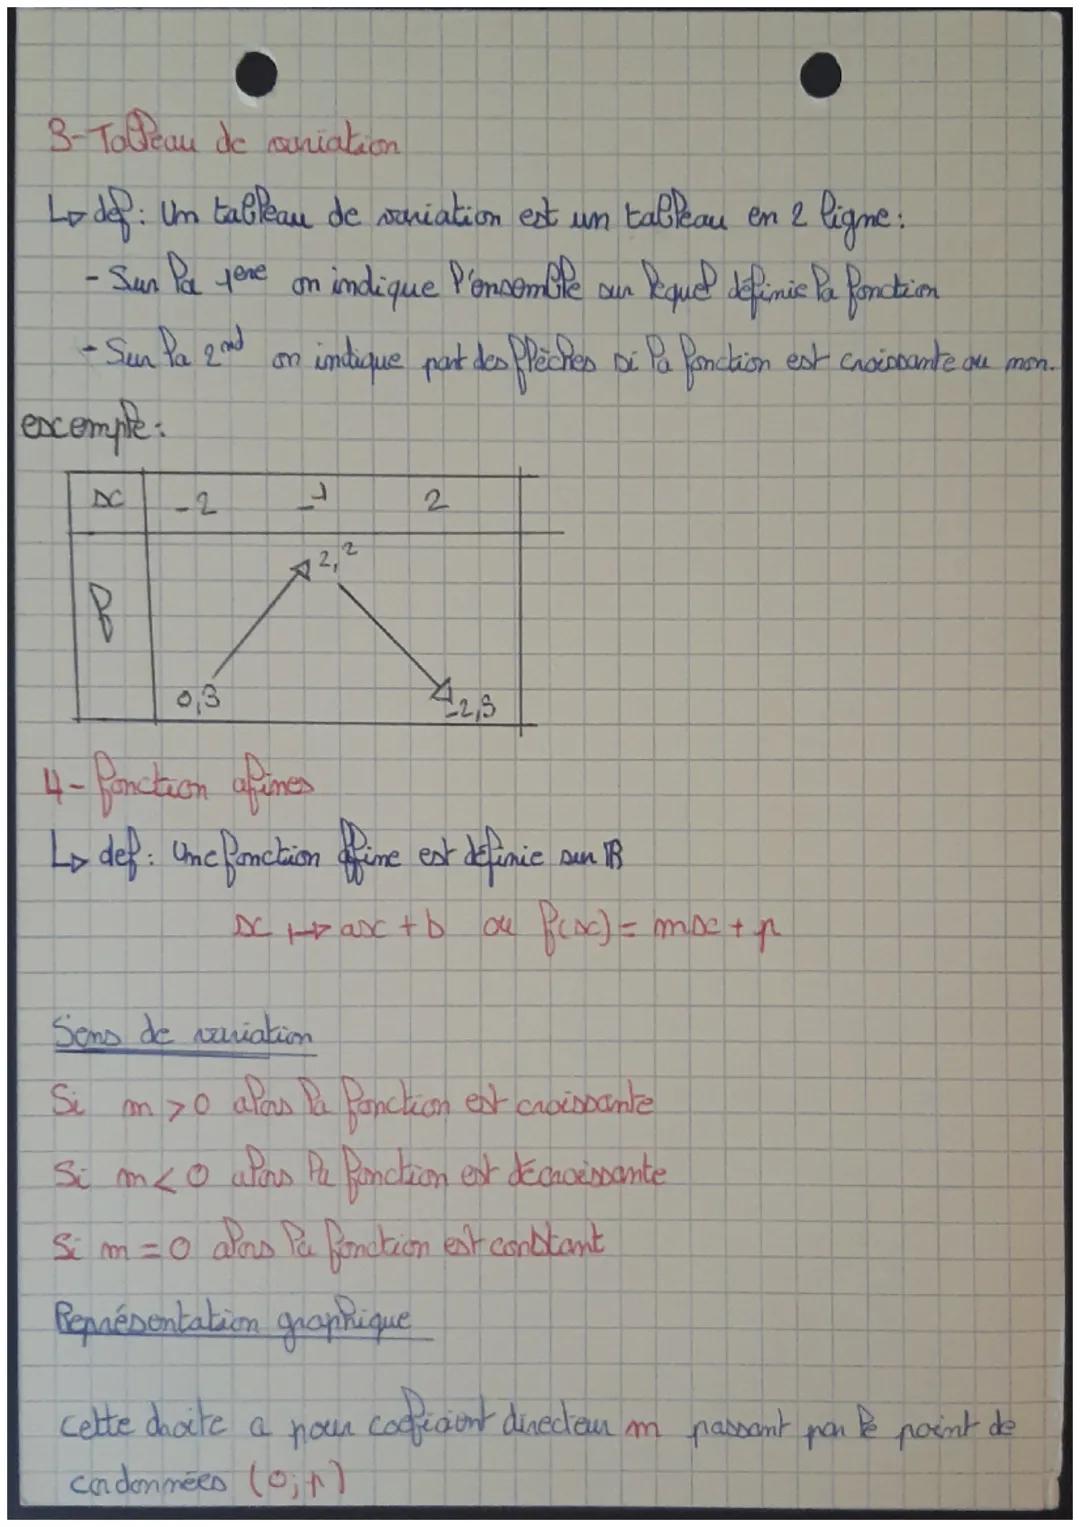 3-Tableau de variation
↳ def: Un tableau de variation est un tableau en 2 ligne:
- Sur la 1ere on indique l'ensemble sur lequel définie la fonction
- Sur la 2nd on indique part des flèches si la fonction est croissante ou non.
excemple:
x -2 -1 2
2,2
f
0,3 -2,5
4- fonction afines
↳ def: Une fonction affine est définie sur ℝ
x ↦ ax + b ou f(x) = mx + p
Sens de variation
Si m > 0 alors la fonction est croissante
Si m < 0 alors la fonction est décroissante
Si m = 0 alors la fonction est constant
Représentation graphique
cette droite a pour coeficient directeur m passant par le point de
cordonnées (0;p)